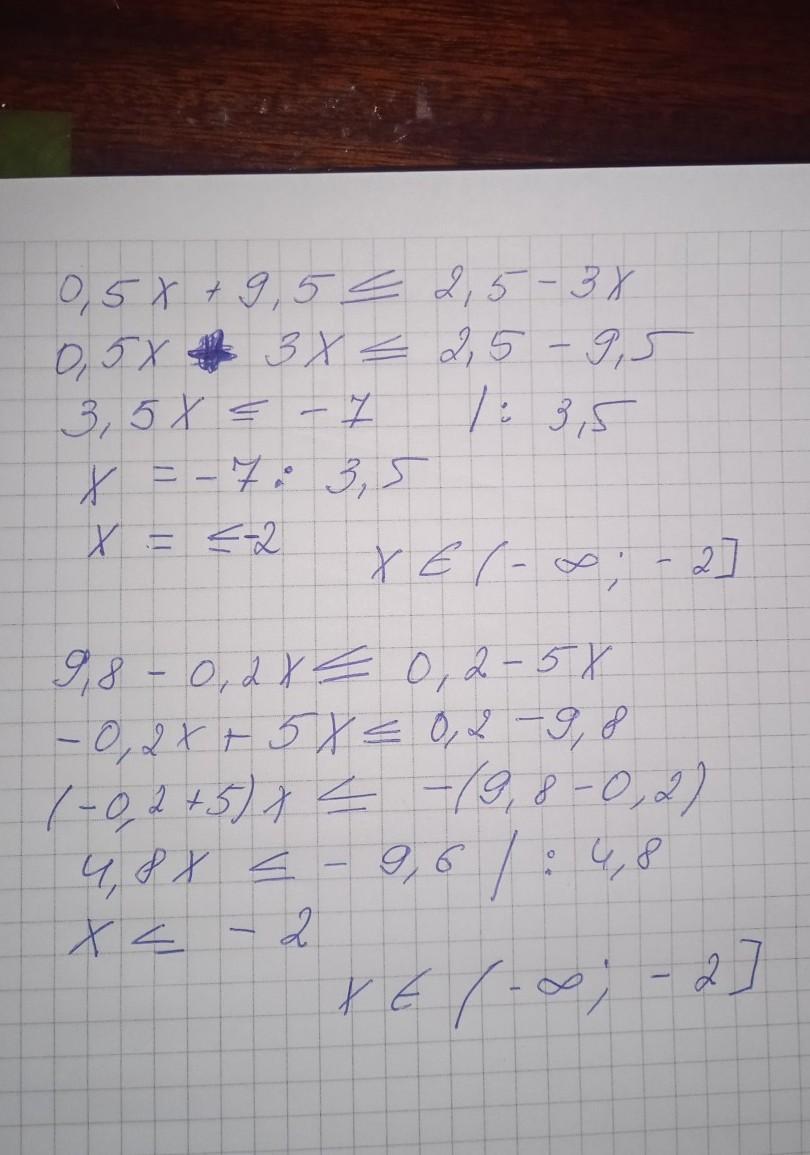 0,5x + 9,5 ≤ 2,5 - 3x
0,5x + 3x ≤ 2,5 - 9,5
3,5x ≤ - 7 /: 3,5
x = - 7 : 3,5
x = ≤ -2
x ∈ (- ∞; - 2]
9,8 - 0,2x ≤ 0,2 - 5x
- 0,2x + 5x ≤ 0,2 - 9,8
(-0,2+5)x ≤ -(9,8-0,2)
4,8x ≤ - 9,6 / : 4,8
x ≤ - 2
x ∈ (- ∞; - 2]